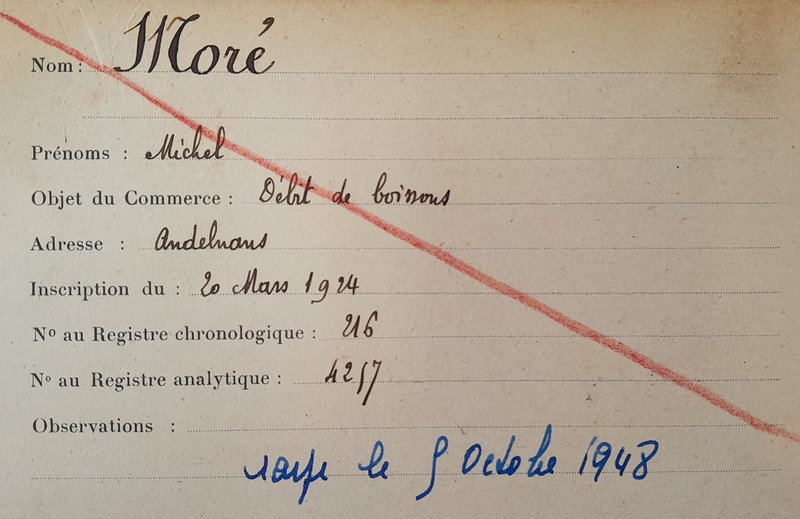 Nom : Moré
Prénoms : Michel
Objet du Commerce : Débit de boissons
Adresse : Andelnans
Inscription du : 20 Mars 1924
Nº au Registre chronologique : 216
Nº au Registre analytique : 4257
Observations :
le 5 Octobre 1948